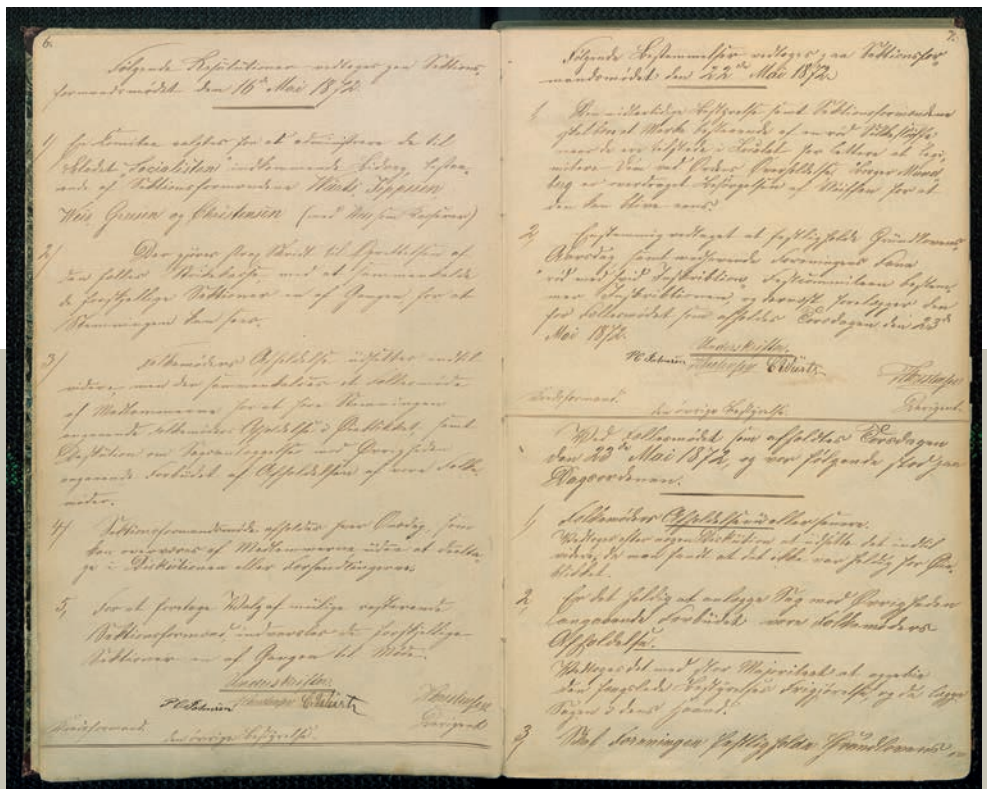 6.
Følgende Resolutioner vedtoges paa Sektions-
formandsmødet den 16de Mai 1872.
1) En Komitee valgtes for at administrere de til
Bladet "Socialisten" indkommende Bidrag, bestaa-
ende af Sektionsformændene Würtz, Jeppesen
Weis, Greisen og Christensen (med Kasserer)
2) Der gjøres strax Skridt til Oprettelsen af
den fælles Strikekasse, med at sammenkalde
de forskjellige Sektioner en af Gangen for at
Stemningen kan sees.
3) Folkemøders Afholdelse udsættes indtil
videre, men der sammenkaldes et Fællesmøde
af Medlemmerne for at høre Stemningen
angaaende Folkemøders Afholdelse i Øieblikket, samt
Diskution om Søgsanlæggelse mod Øvrigheden
angaaende Forbudet af Afholdelsen af vore Folke-
møder.
4) Sektionsformandsmøde afholdes hver Onsdag, som
kan overværes af Medlemmerne uden at deelta-
ge i Diskutionen eller Forhandlingerne.
5, For at foretage Valg af mulige resterende
Sektionsformænd, indvarsles de forskjellige
Sektioner en af Gangen til Møde.
Underskrifter.
C Würtz
Dirigent
den øvrige Bestyrelse.
7.
Følgende Bestemmelser vedtoges paa Sektionsfor-
mandsmødet den 22de Mai 1872.
1, Den midlertidige Bestyrelse samt Sektionsformændene
et Mærke bestaaende af en rød Silkesløife
naar de ere tilstede i for lettere at legi-
timere Dem ved Ordens Overholdelse. Borger Mund-
berg er overdraget Besørgelsen af Sløifen for at
den kan blive eens.
2, Eenstemmig vedtaget at festligholde Grundlovens
Aarsdag samt medførende Foreningens Fane
"rød med hvid Inskribtion", Festkommiteen bestem-
mer Inskribtionen, og dernæst forelægger den
for Fællesmødet som afholdes Torsdagen den 23de
Mai 1872.
Underskrifter.
C Würtz
Dirigent.
den øvrige Bestyrelse.
Ved Fællesmødet som afholdtes Torsdagen
den 23de Mai 1872, og var følgende stod paa
Dagsordenen.
1, Folkemøders Afholdelse nu eller senere.
Vedtoges efter nogen Diskution at udsætte det indtil
videre, da man fandt at det ikke var heldig for Øie-
blikket.
2, Er det heldig at anlægge Sag mod Øvrigheden
angaaende Forbudet vore Folkemøders
Afholdelse.
Vedtoges det med stor Majoritet at oppebie
den fængslede Bestyrelses Frigjørelse, og da lægge
Sagen i dens Haand.
3, Skal Foreningen festligholde Grundlovens